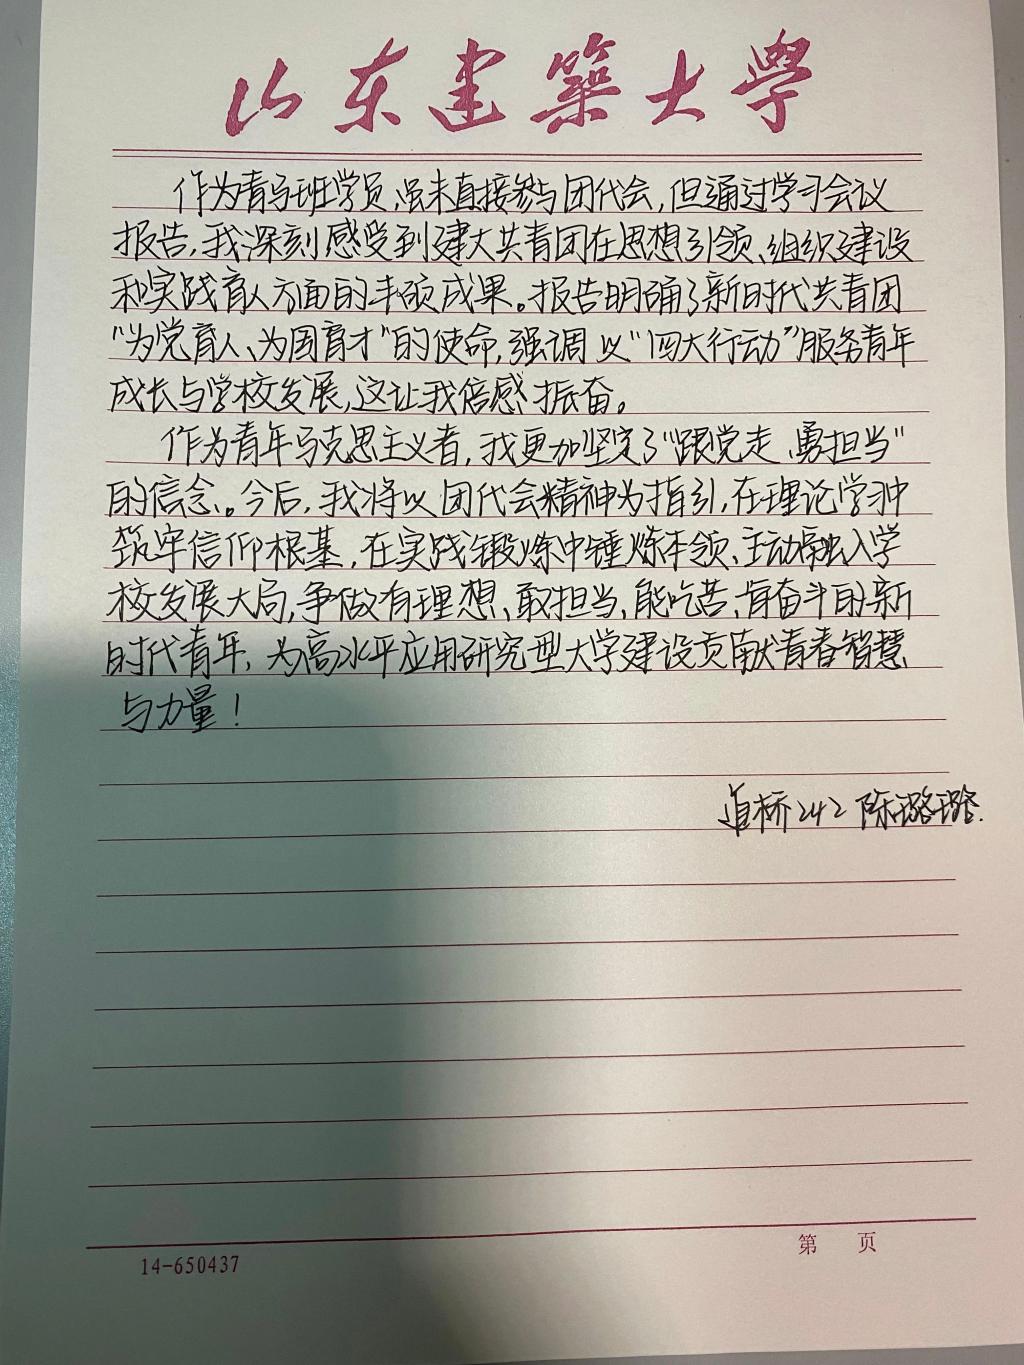 山东建築大學
作为青马班学员,虽未直接参与团代会,但通过学习会议
报告,我深刻感受到建大共青团在思想引领、组织建设
和实践育人方面的丰硕成果。报告明确了新时代共青团
“为党育人、为国育才”的使命,强调以“四大行动”服务青年
成长与学校发展,这让我倍感振奋。
作为青年马克思主义者,我更加坚定了“跟党走、勇担当”
的信念。今后,我将以团代会精神为指引,在理论学习中
筑牢信仰根基,在实践锻炼中锤炼本领、主动融入学
校发展大局,争做有理想、敢担当、能吃苦、肯奋斗的新
时代青年,为高水平应用研究型大学建设贡献青春智慧
与力量!
道桥242 陈璐璐.
第 页
14-650437